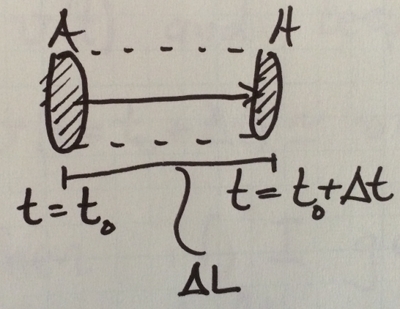 A
t = t₀
t = t₀ + Δt
ΔL